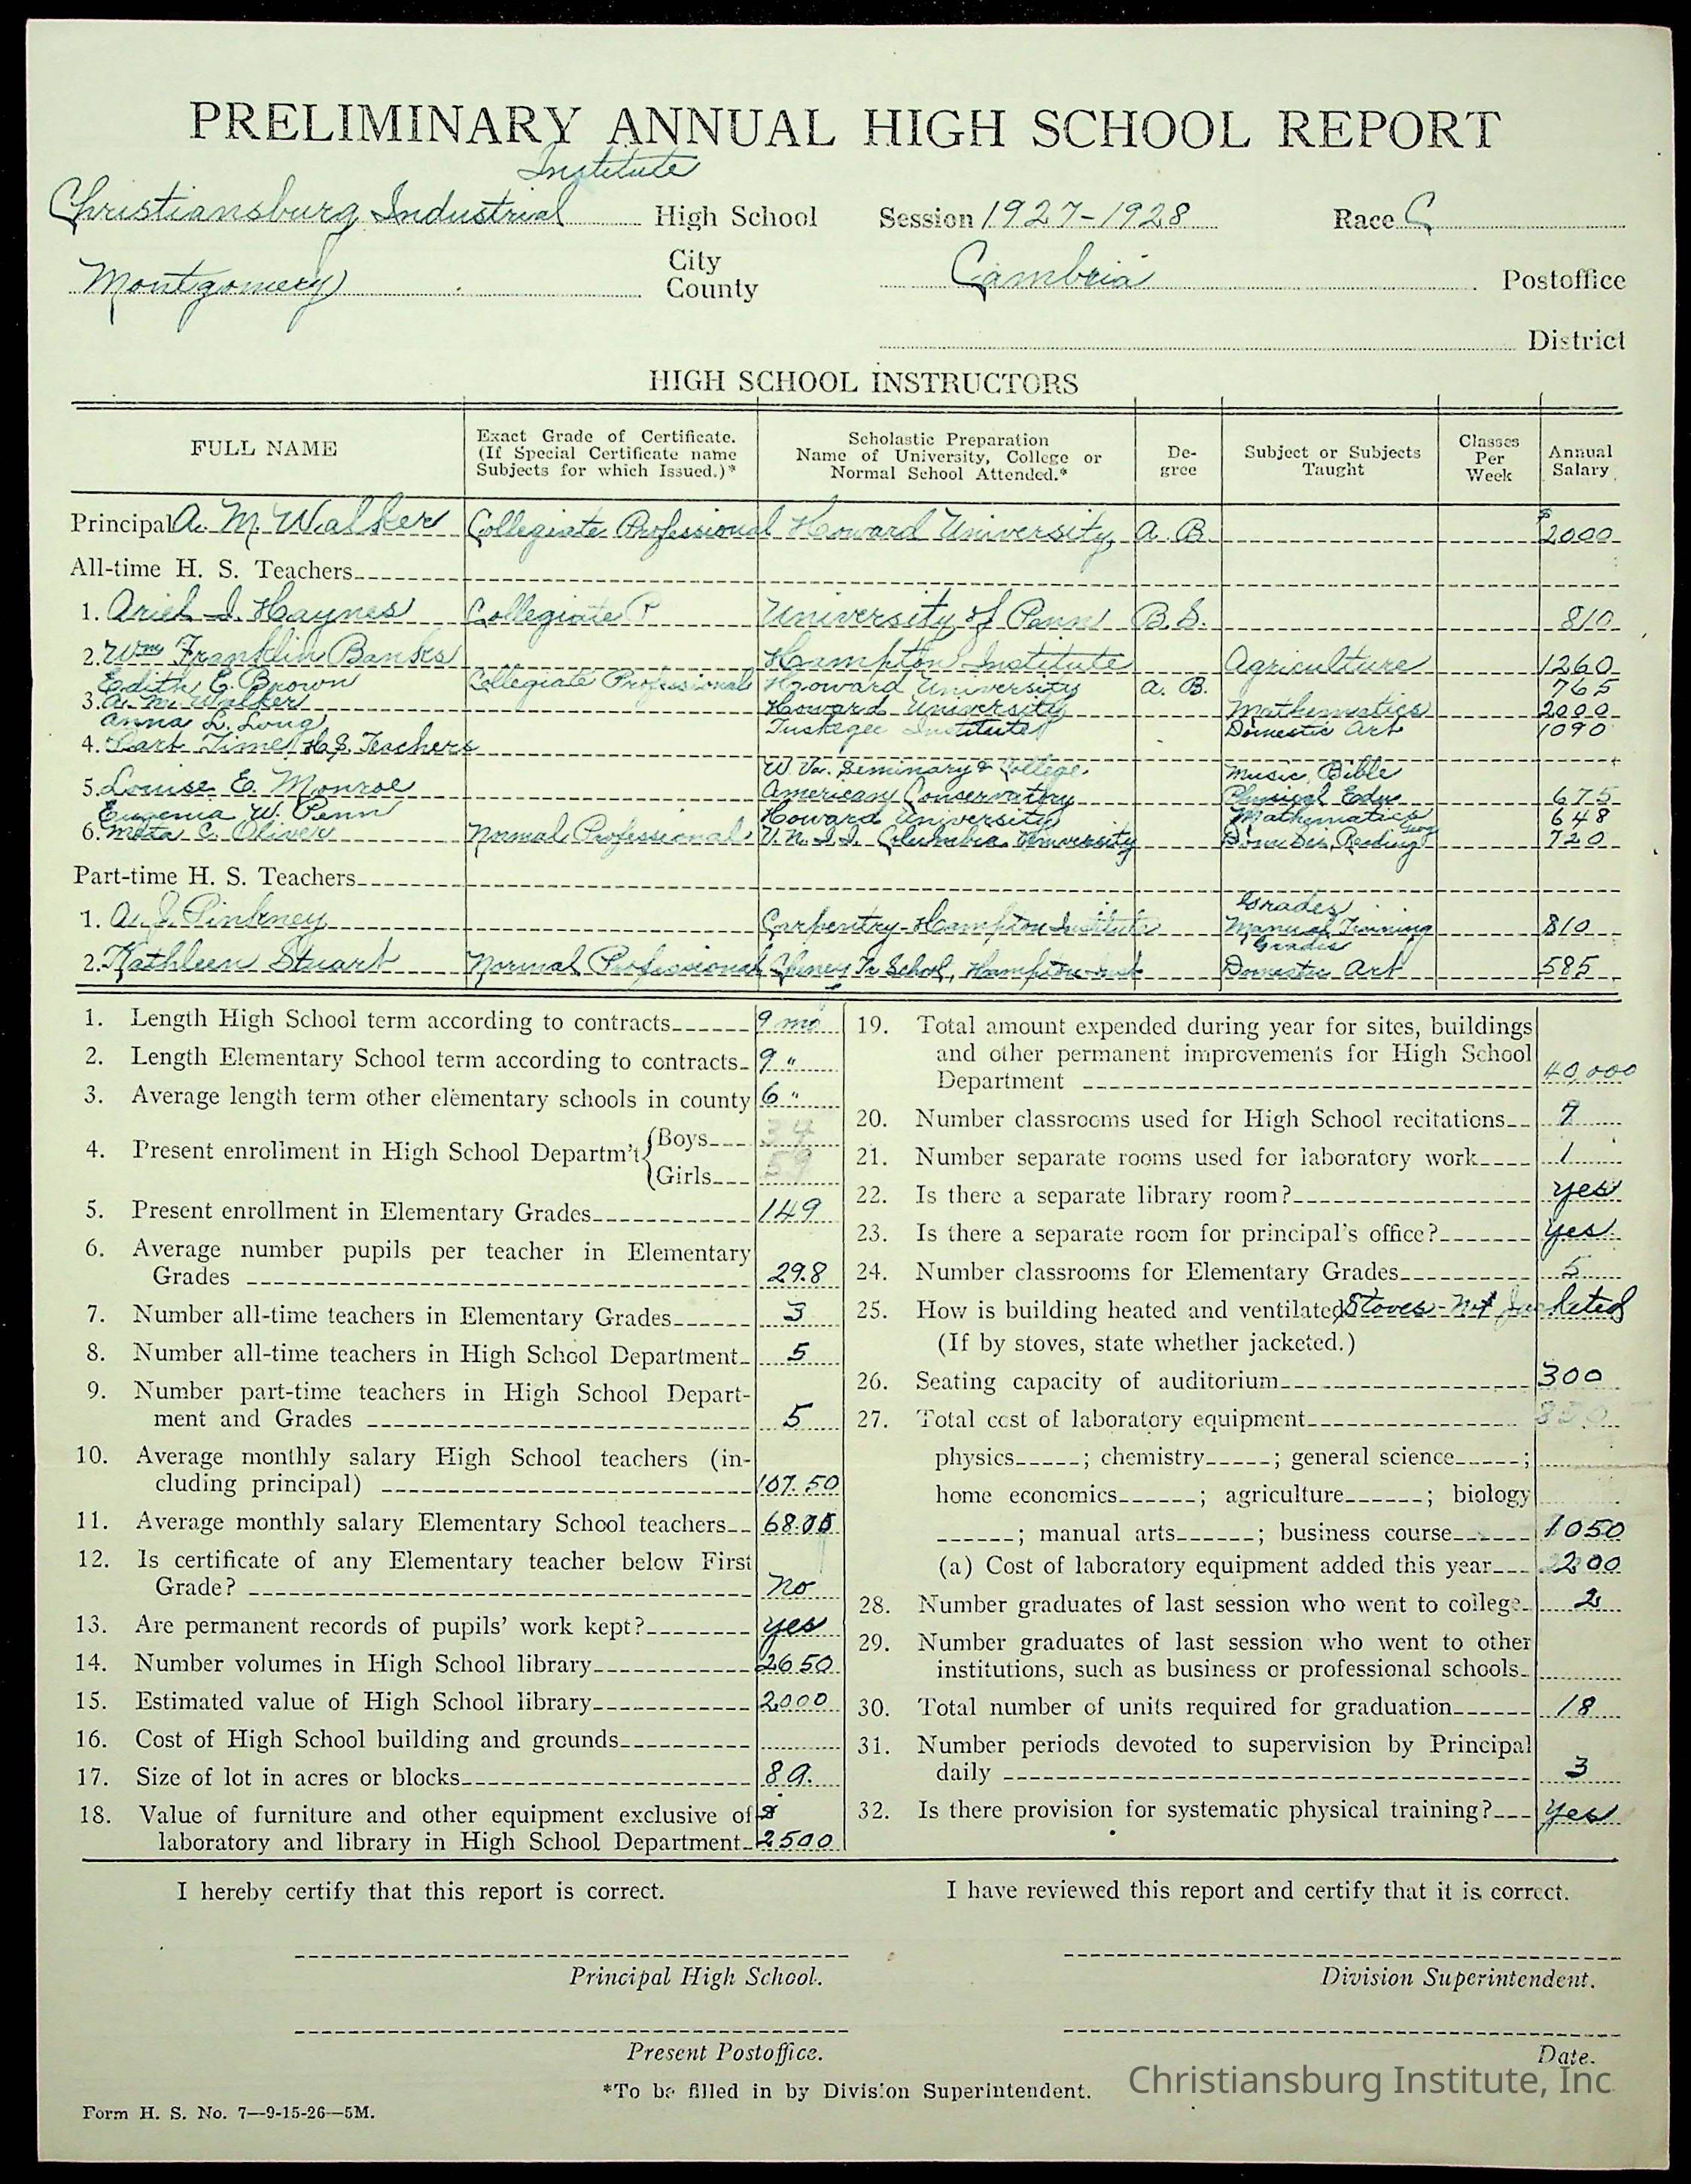 PRELIMINARY ANNUAL HIGH SCHOOL REPORT
Institute
Christiansburg Industrial High School Session 1927-1928 Race C
Montgomery City County Cambria Postoffice
District
HIGH SCHOOL INSTRUCTORS
FULL NAME Exact Grade of Certificate. (If Special Certificate name Subjects for which Issued.)* Scholastic Preparation Name of University, College or Normal School Attended.* De-gree Subject or Subjects Taught Classes Per Week Annual Salary
Principal A. M. Walker Collegiate Professional Howard University A. B. $2000
All-time H. S. Teachers
1. Ariel I. Haynes Collegiate P University of Penn B.S. 810
2. Wm Franklin Banks Hampton Institute Agriculture 1260
Edith E. Brown Collegiate Professional Howard University A. B. 765
3. A. M. Walker Howard University Mathematics 2000
Anna L. Long Tuskegee Institute Domestic Art 1090
4. Part Time H.S. Teachers
W. Va. Seminary & College Music, Bible
5. Louise E. Monroe American Conservatory Physical Edu 675
Eugenia W. Penn Howard University Mathematics 648
6. Meta C. Oliver Normal Professional V. N. I. I. Columbia University Reading 720
Part-time H. S. Teachers
Grades
1. A. J. Pinkney Carpentry-Hampton Institute Manual Training 810
Grades
2. Kathleen Stuart Normal Professional Cheney Tr School, Hampton Inst Domestic Art 585
1. Length High School term according to contracts 9 mo
2. Length Elementary School term according to contracts 9 "
3. Average length term other elementary schools in county 6 "
4. Present enrollment in High School Departm't Boys 34
Girls 59
5. Present enrollment in Elementary Grades 149
6. Average number pupils per teacher in Elementary
Grades 29.8
7. Number all-time teachers in Elementary Grades 3
8. Number all-time teachers in High School Department 5
9. Number part-time teachers in High School Depart-
ment and Grades 5
10. Average monthly salary High School teachers (in-
cluding principal) 107.50
11. Average monthly salary Elementary School teachers 68.
12. Is certificate of any Elementary teacher below First
Grade? no
13. Are permanent records of pupils' work kept? yes
14. Number volumes in High School library 2650
15. Estimated value of High School library 2000
16. Cost of High School building and grounds
17. Size of lot in acres or blocks 8 a.
18. Value of furniture and other equipment exclusive of $
laboratory and library in High School Department 2500
19. Total amount expended during year for sites, buildings
and other permanent improvements for High School
Department 40,000
20. Number classrooms used for High School recitations 7
21. Number separate rooms used for laboratory work 1
22. Is there a separate library room? yes
23. Is there a separate room for principal's office? yes
24. Number classrooms for Elementary Grades 5
25. How is building heated and ventilated Stoves - Not Jacketed
(If by stoves, state whether jacketed.)
26. Seating capacity of auditorium 300
27. Total cost of laboratory equipment
physics ; chemistry ; general science ;
home economics ; agriculture ; biology
; manual arts ; business course 1050
(a) Cost of laboratory equipment added this year 200
28. Number graduates of last session who went to college 2
29. Number graduates of last session who went to other
institutions, such as business or professional schools
30. Total number of units required for graduation 18
31. Number periods devoted to supervision by Principal
daily 3
32. Is there provision for systematic physical training? Yes
I hereby certify that this report is correct. I have reviewed this report and certify that it is correct.
Principal High School. Division Superintendent.
Present Postoffice. Date.
*To be filled in by Division Superintendent.
Christiansburg Institute, Inc
Form H. S. No. 7—9-15-26—5M.